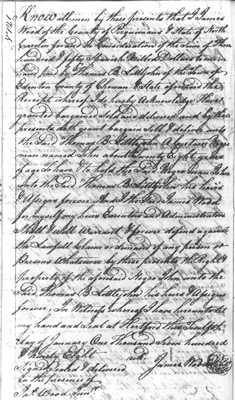 Know all men by these presents That I James
Wood of the County of Perquimans & State of North
Carolina for and in Consideration of the Sum of Three
hundred & fifty Spanish Milled Dollars to me in
hand paid by Thomas B. Littlejohn of the Town of
Edenton County of Chowan & State aforesaid the
Receipt whereof I do hereby acknowledge Have
granted bargained Sold and delivered and by these
presents doth grant bargain Sell & deliver unto
the Said Thomas B. Littlejohn A Certain Negro
man named John about Twenty Eight years
of age To have & To hold the Said Negro man John
unto the Said Thomas B. Littlejohn his heirs
& Assigns forever And I the Said James Wood
for myself my heirs Executors and Administrators
Shall & will Warrant & forever defend against
the Lawfull Claim or demand of any person or
persons Whatsoever by these presents the Right &
property of the aforesaid Negro John unto the
Said Thomas B. Littlejohn his heirs & Assigns
forever, In Witness whereof I have hereunto Set
my hand and Seal at Hertford this Twelfth
day of January One Thousand Seven hundred
& Ninety Eight
Signed Sealed & delivered James Wood
in the presence of
Jas. Wood Junr.